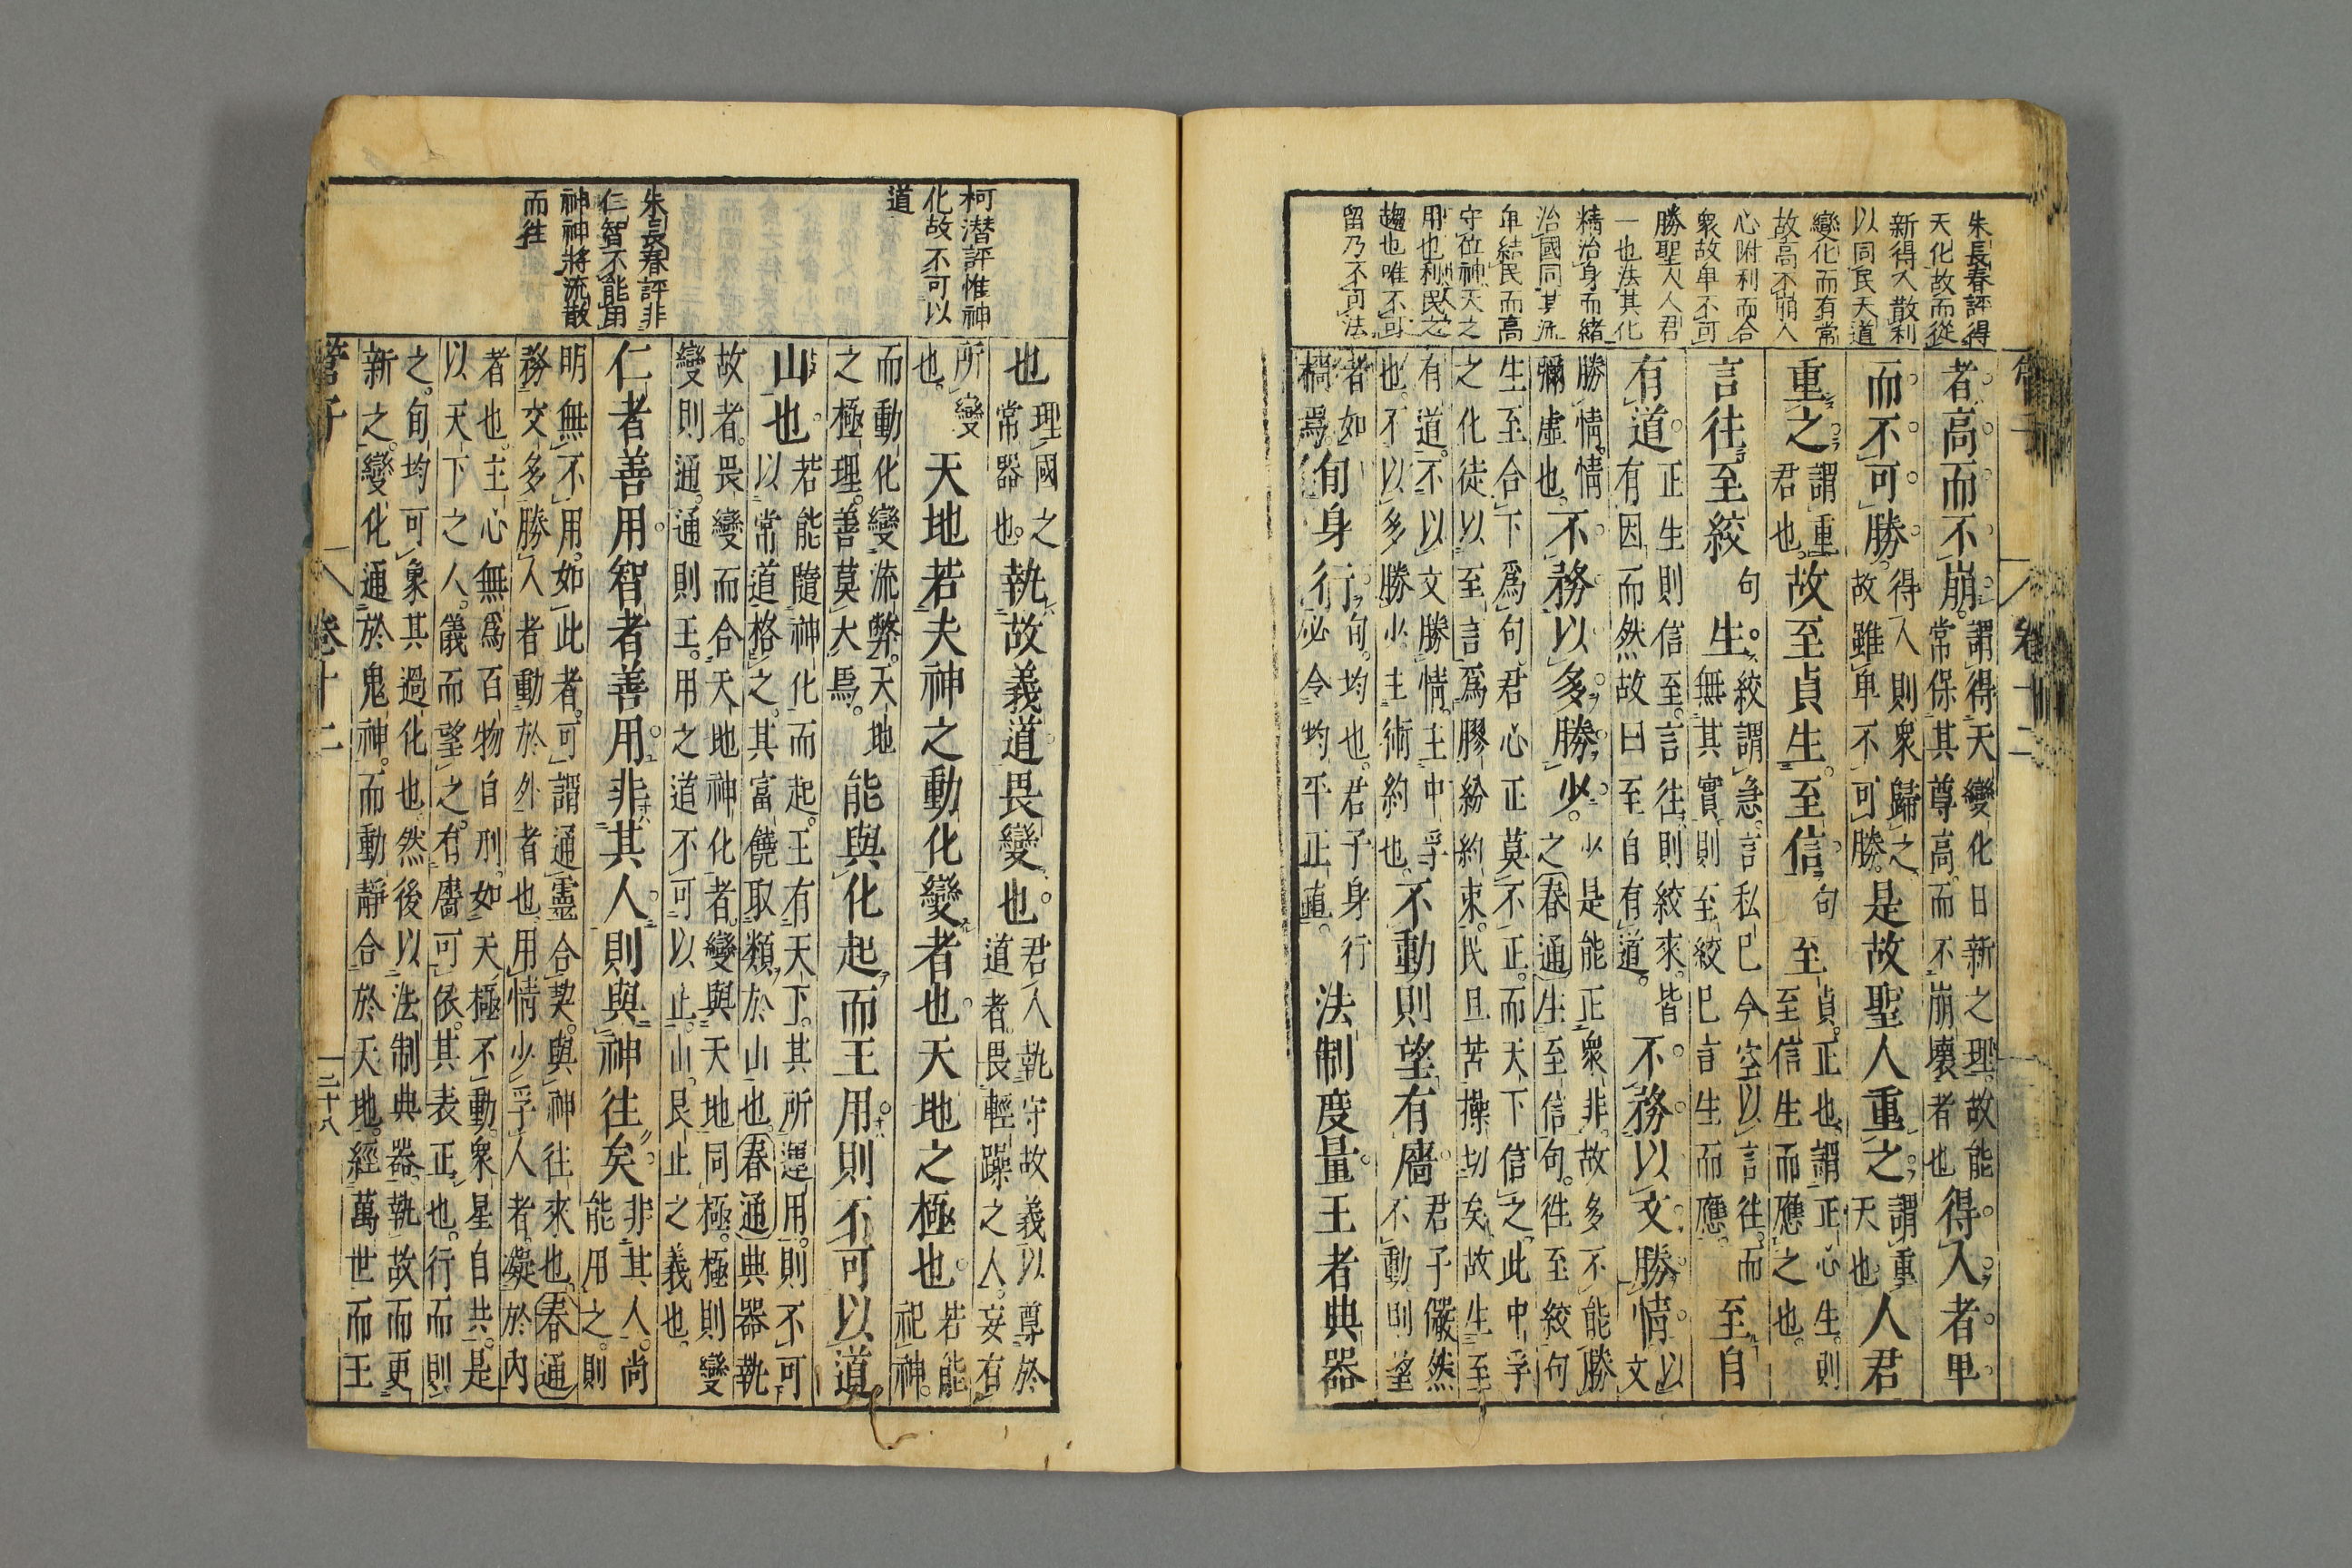 管子 卷十二
朱長春評得
天化故而從
新得人散利
以同民天道
變化而有常
故高不崩人
心附利而合
衆故卑不可
勝聖人人君
一也法其化
精治身而緒
治國同其流
卑結民而高
守位神天之
用也利民之
趨也唯不可
留乃不可法
者高而不崩。謂得天變化日新之理故能常保其尊高而不崩壞者也得人者卑
而不可勝。得人則衆歸之故雖卑不可勝。是故聖人重之。謂重天也人君
重之。謂重君也。故至貞生至信句至貞。正也。謂正心生。則至信生而應之也。至自
言往至絞句生。絞謂急。言私已今空以言往。而無其實則至絞已言生而應。
有道。正生則信至。言往則絞來。皆有因而然故曰至自有道。不務以文勝情。以文
勝情。情彌虛也。不務以多勝少。少是能正衆非。故多不能勝之春通生至信句。往至絞句
生至合下爲句。君心正莫不正。而天下信之。此中孚之化徒以至言爲膠紛約束。民且苦操切矣。故生至
有道。不以文勝情。主中孚也。不以多勝少。主術約也。不動則望有廧。君子儼然不動則望
者如牆焉。旬身行。旬均也。君子身行必令均平正直。法制度量。王者典器
柯潛評惟神
化故不可以
道
朱長春評非
仁智不能用
神神將流散
而往
也理國之常器也。執故義道畏變也。君人執守故義以尊於道者畏輕躁之人。妄有
所變也。天地若夫神之動化變者也。天地之極也。若能祀神。
而動化變流弊。天地之極理。善莫大焉。能與化起而王用。則不可以道
山也。若能隨神化而起。王有天下。其所運用。則不可以常道格之。其富饒取類於山也春通典器執
故者。畏變而合天地神化者。變與天地同極。極則變
變則通。通則王。用之道不可以止。山艮止之義也。
仁者善用。智者善用。非其人。則與神往矣。非其人。尚能用之。則
明無不用。如此者。可謂通靈合契。與神往來也。春通
務文多勝人者動於外者也用情少孚人者。凝於內
者也。主心無爲百物自刑。如天極不動。衆星自共。是
以天下之人。儀而望之。有廧可依。其表正也。行而則
之。旬均可象其過化也然後以法制典器。執故而更
新之。變化通於鬼神。而動靜合於天地。經萬世而王
管子 卷十二 二十八